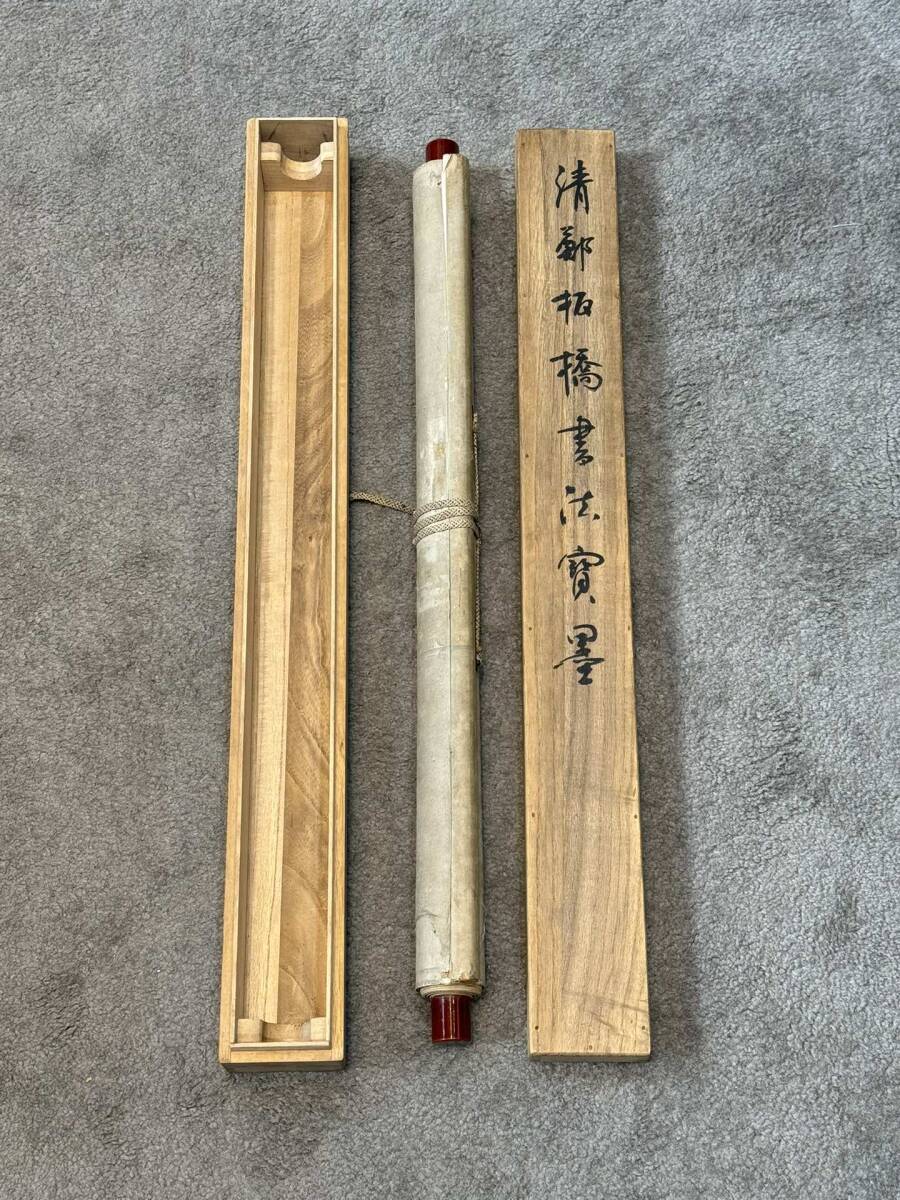 清鄭板橋書法寶墨